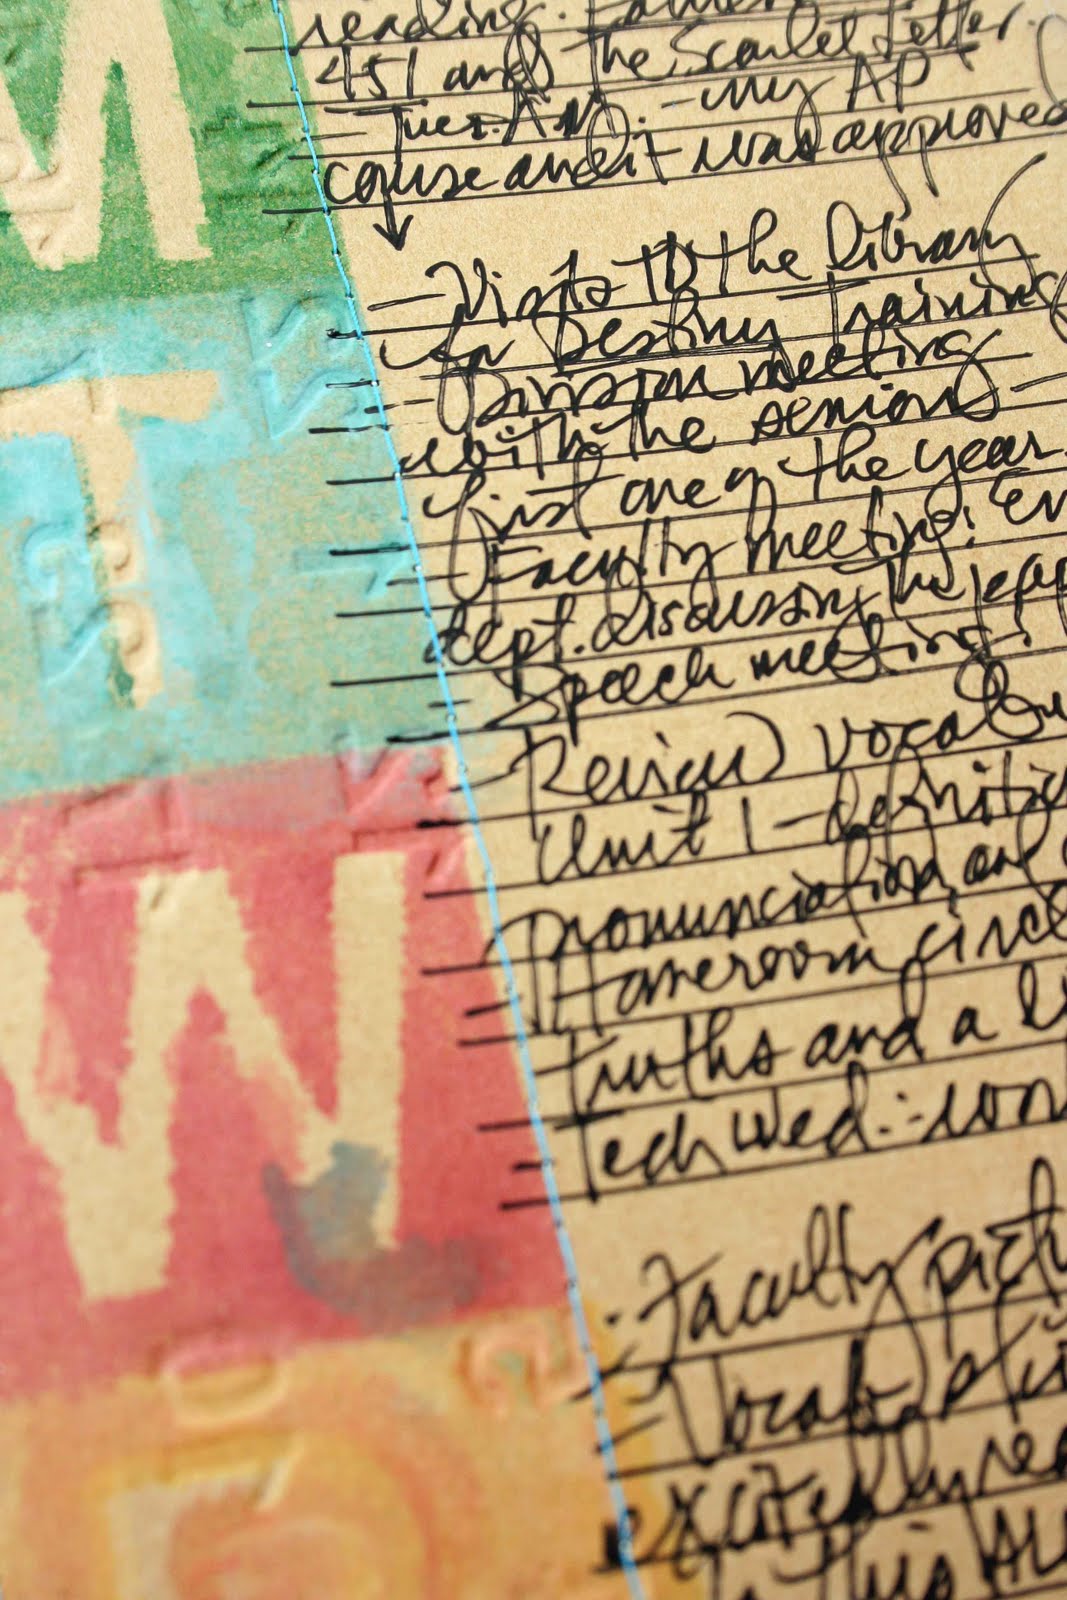 M
T
W
reading.
451 and the Scarlet Letter.
— Tues. AM. - my AP
course audit was approved
— Visits to the library
for Destiny Training
— Division meeting
with the seniors —
first one of the year.
— Faculty meeting!
dept. discussing the
Speech meeting!
Review
Unit 1 —
pronunciation, and
Homeroom
truths and a
Tech Wed.:
. Faculty
Vocab
excitedly
this